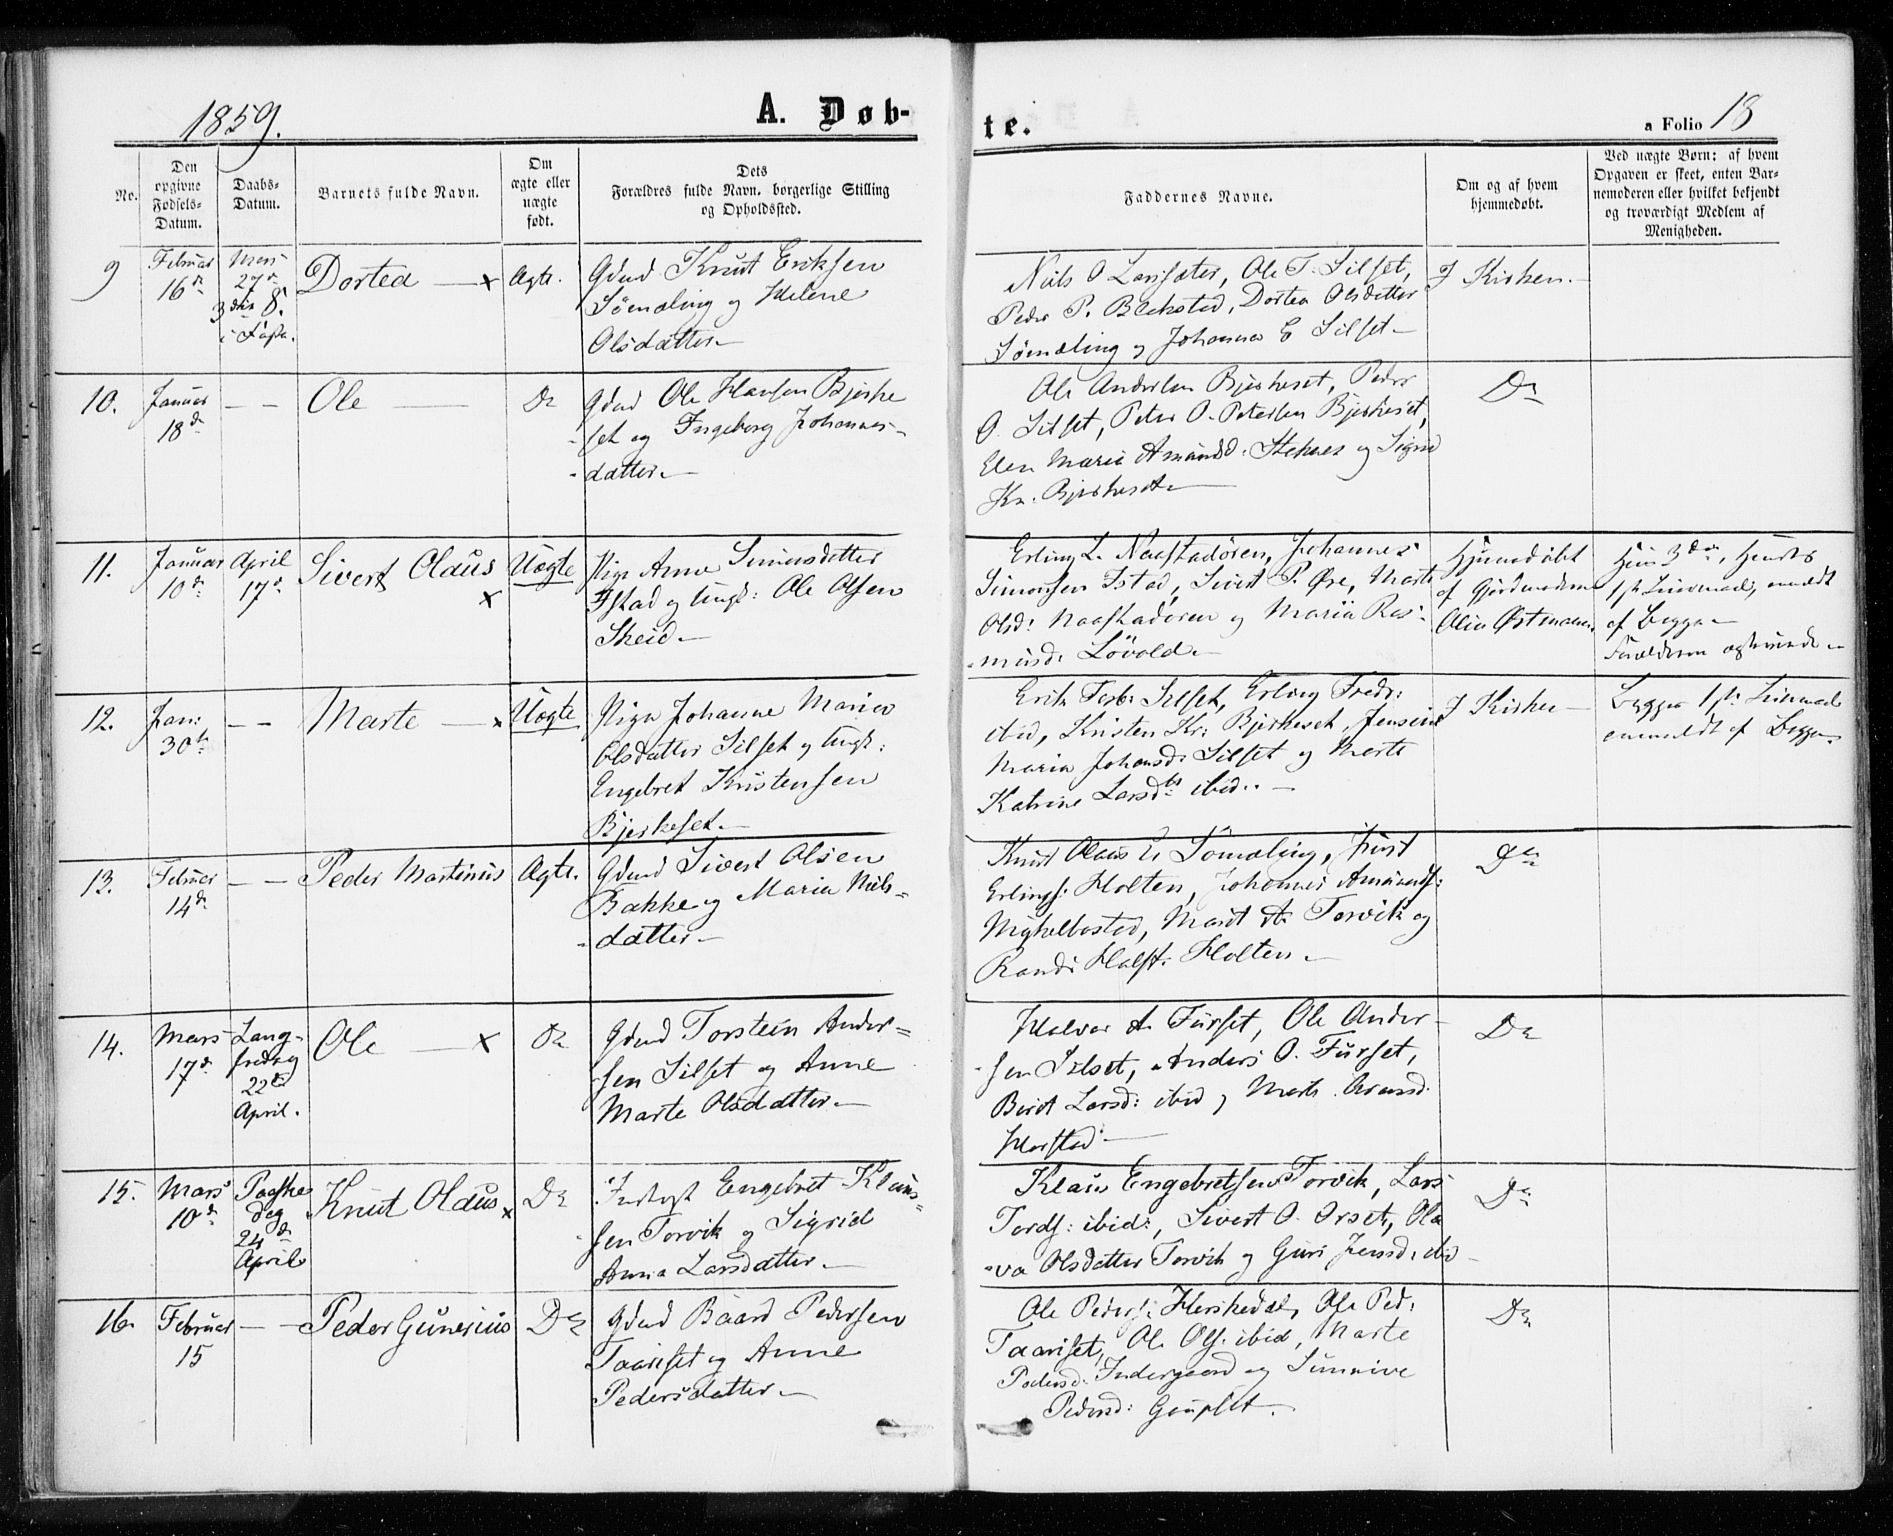 1859.
A. Døb-
te.
a Folio 18
No.
Den
opgivne
Fødsels-
Datum.
Daabs-
Datum.
Barnets fulde Navn.
Om
ægte eller
uægte
født.
Dets
Forældres fulde Navn, borgerlige Stilling
og Opholdssted.
Faddernes Navne.
Om og af hvem
hjemmedøbt.
Ved uægte Børn: af hvem
Opgaven er skeet, enten Bar-
nemoderen eller hvilket bekjendt
og troværdigt Medlem af
Menigheden.
9
Februar
16de
Mars
27de
3die S.
i Faste.
Dortea
Ægte.
Gdmd Knut Eriksen
Sömæling og Helene
Olsdatter
Niels O Larssæter, Ole T. Silset,
Peder P. Blekstad, Dortea Olsdatter
Sömæling og Johanna E Silset
I Kirken.
10.
Januar
18de
Ole
Do
Gdmd Ole Hansen Bjerke
set og Ingeborg Johannes-
datter
Ole Andersen Bjerkeset, Peder
O. Silset, Peter O. Petersen Bjerkeset,
Elen Marie Amundsd. og Sigrid
Kn. Bjerkeset
Do
11.
Januar
10de
April
17de
Sivert Olaus
Uægte
Pige Anne Simonsdatter
Istad og Ungk: Ole Olsen
Skeid
Erling L. Naastadören, Johannes
Simonsen Istad, Sivert P. Öre, Marte
Olsd: Naastadören og Maria Ras-
musd: Lövold
Hjemmedöbt
af Gjordmoderen
Østmann.
Hun 3die, Hans
1ste Leiermaal, anmeldt
af Begge
Forældrene
12.
Jan:
30te
Marte
Uægte
Pige Johanne Maria
Olsdatter Silset og Ungk:
Engebret Kristensen
Bjerkeset
Erik Silset, Erling Fredr:
ibid, Kristen Kr: Bjerkeset, Jensine
Maria Johansd: Silset og Marte
Katrine Larsdtr ibid.
I Kirken
Begges 1ste Leiermaal
anmeldt af Begge
13.
Februar
14de
Peder Martinus
Ægte.
Gdmd Sivert Olsen
Bakke og Maria Niels-
datter
Knut Olaus E Sömæling, Knut
Erlings: Holten, Johannes Amunds:
Myklebostad, Marit A. Torvik og
Randi Halst: Holten
Do
14.
Mars
17de
Lang-
fredag
22de
April.
Ole
Do
Gdmd Torstein Ander-
sen Silset og Anne
Marte Olsdatter
Halvor A. Furset, Ole Ander-
sen Silset, Anders O. Furset,
Berit Larsd: ibid og Marte
Harstad
Do
15.
Mars
10de
Paaske
dag
24de
April
Knut Olaus
Do
Inderst Engebret Klaus-
sen Torvik og Sigrid
Anna Larsdatter
Klaus Engebretsen Torvik, Lars
Tords: ibid:, Sivert O. Orset, Ola
va Olsdatter Torvik og Guri Jensd. ibid
Do
16.
Februar
15
Peder Gunerius
Do
Gdmd Baard Pedersen
Taariset og Anne
Pedersdatter
Ole Peders: Herskedal, Ole Ped:
Taariset, Ole Ols. ibid, Marte
Pedersd: Indergaard og Sunnive
Pedersd: Goupset.
Do